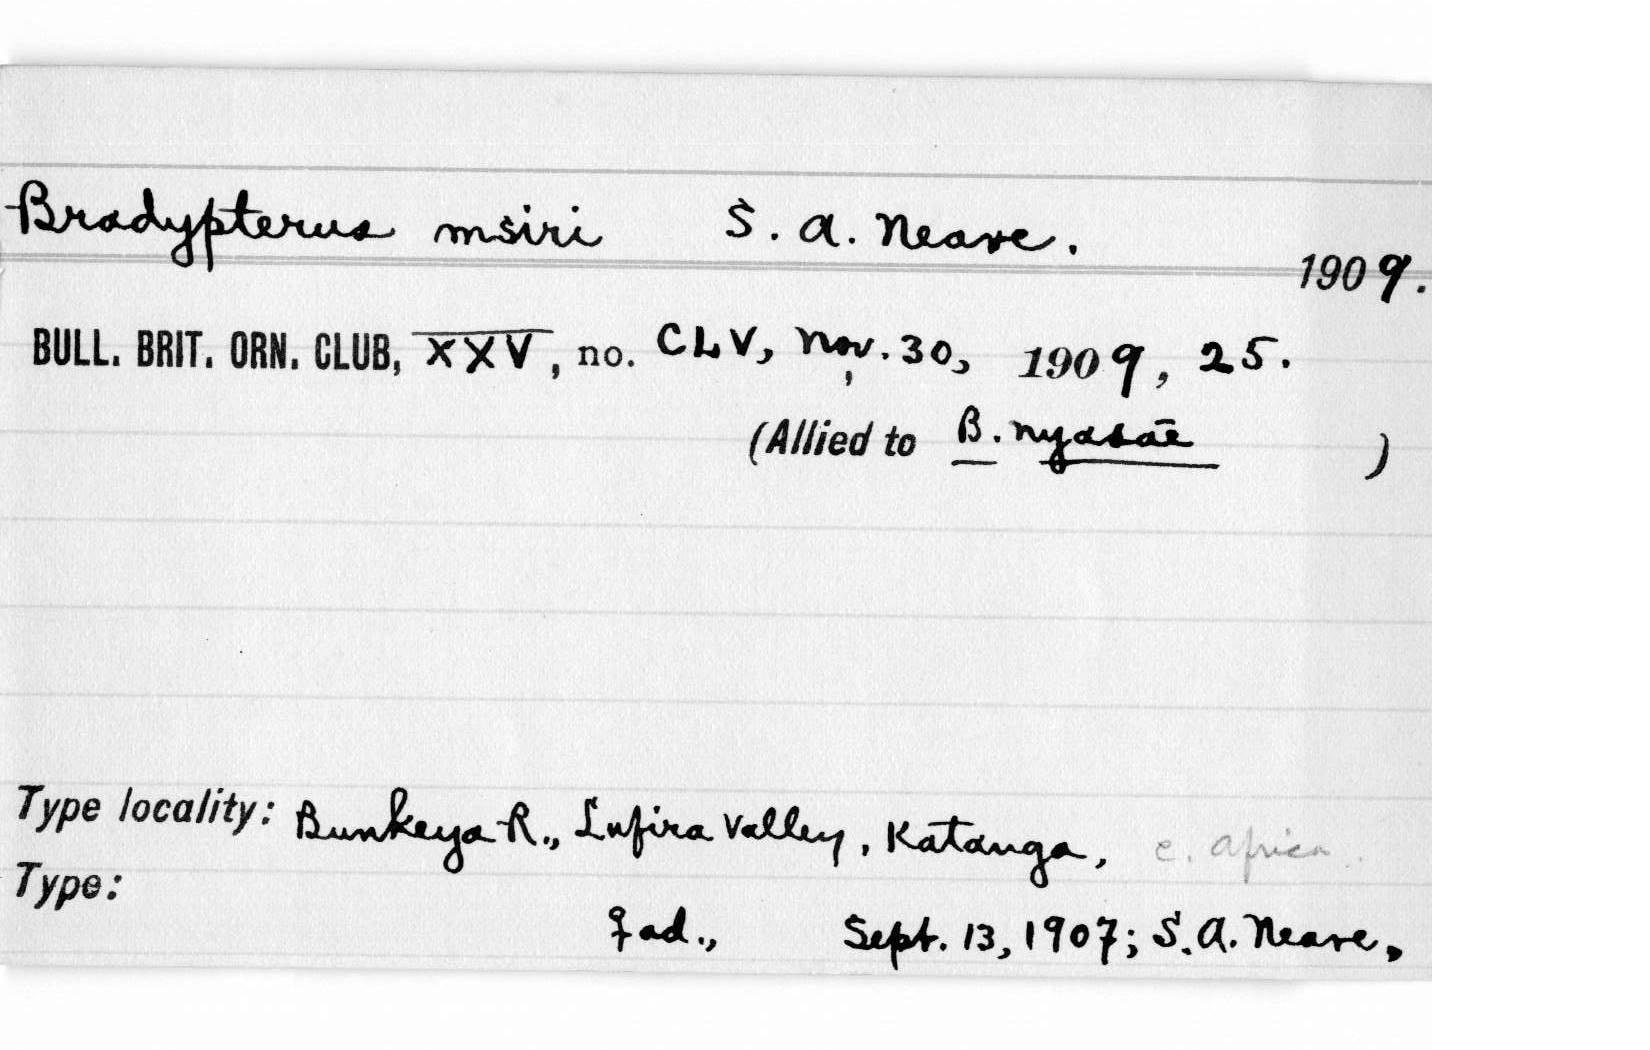 Bradypterus msiri S. A. Neave.
1909.
BULL. BRIT. ORN. CLUB, XXV, no. CLV, Nov. 30, 1909, 25.
(Allied to B. nyasae )
Type locality: Bunkeya R., Lufira Valley, Katanga, c. Africa.
Type:
♀ ad., Sept. 13, 1907; S. A. Neave.